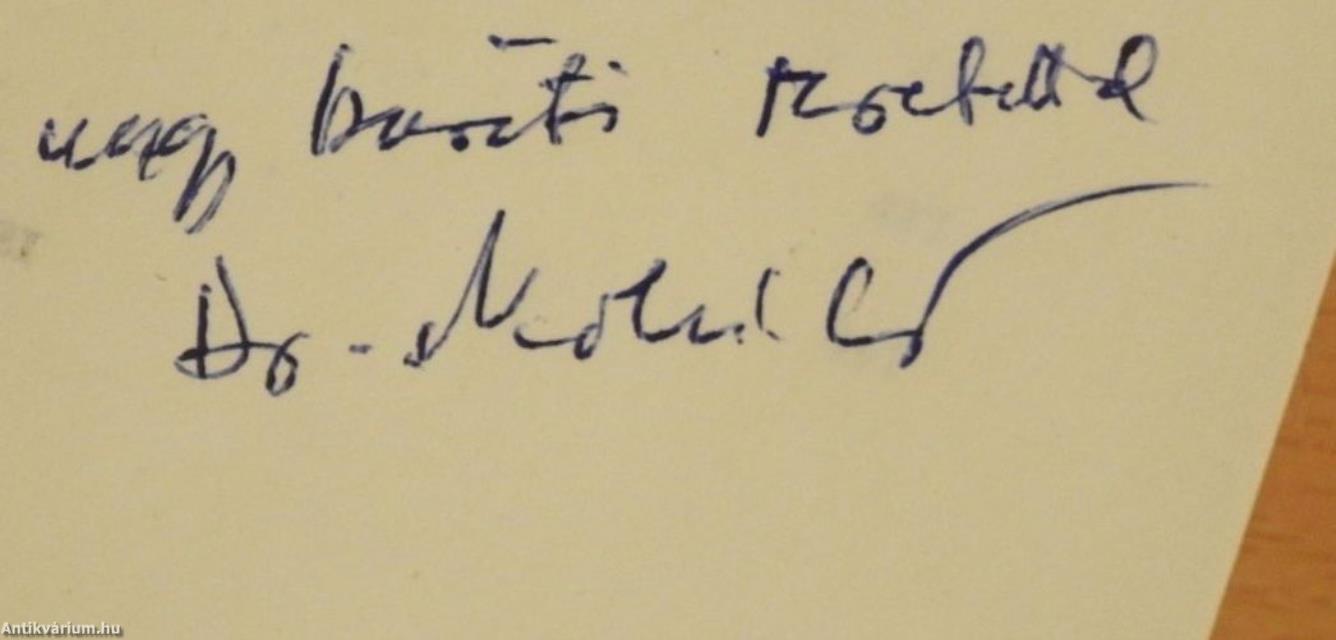 nagy baráti szeretettel
Dr.
Antikvárium.hu